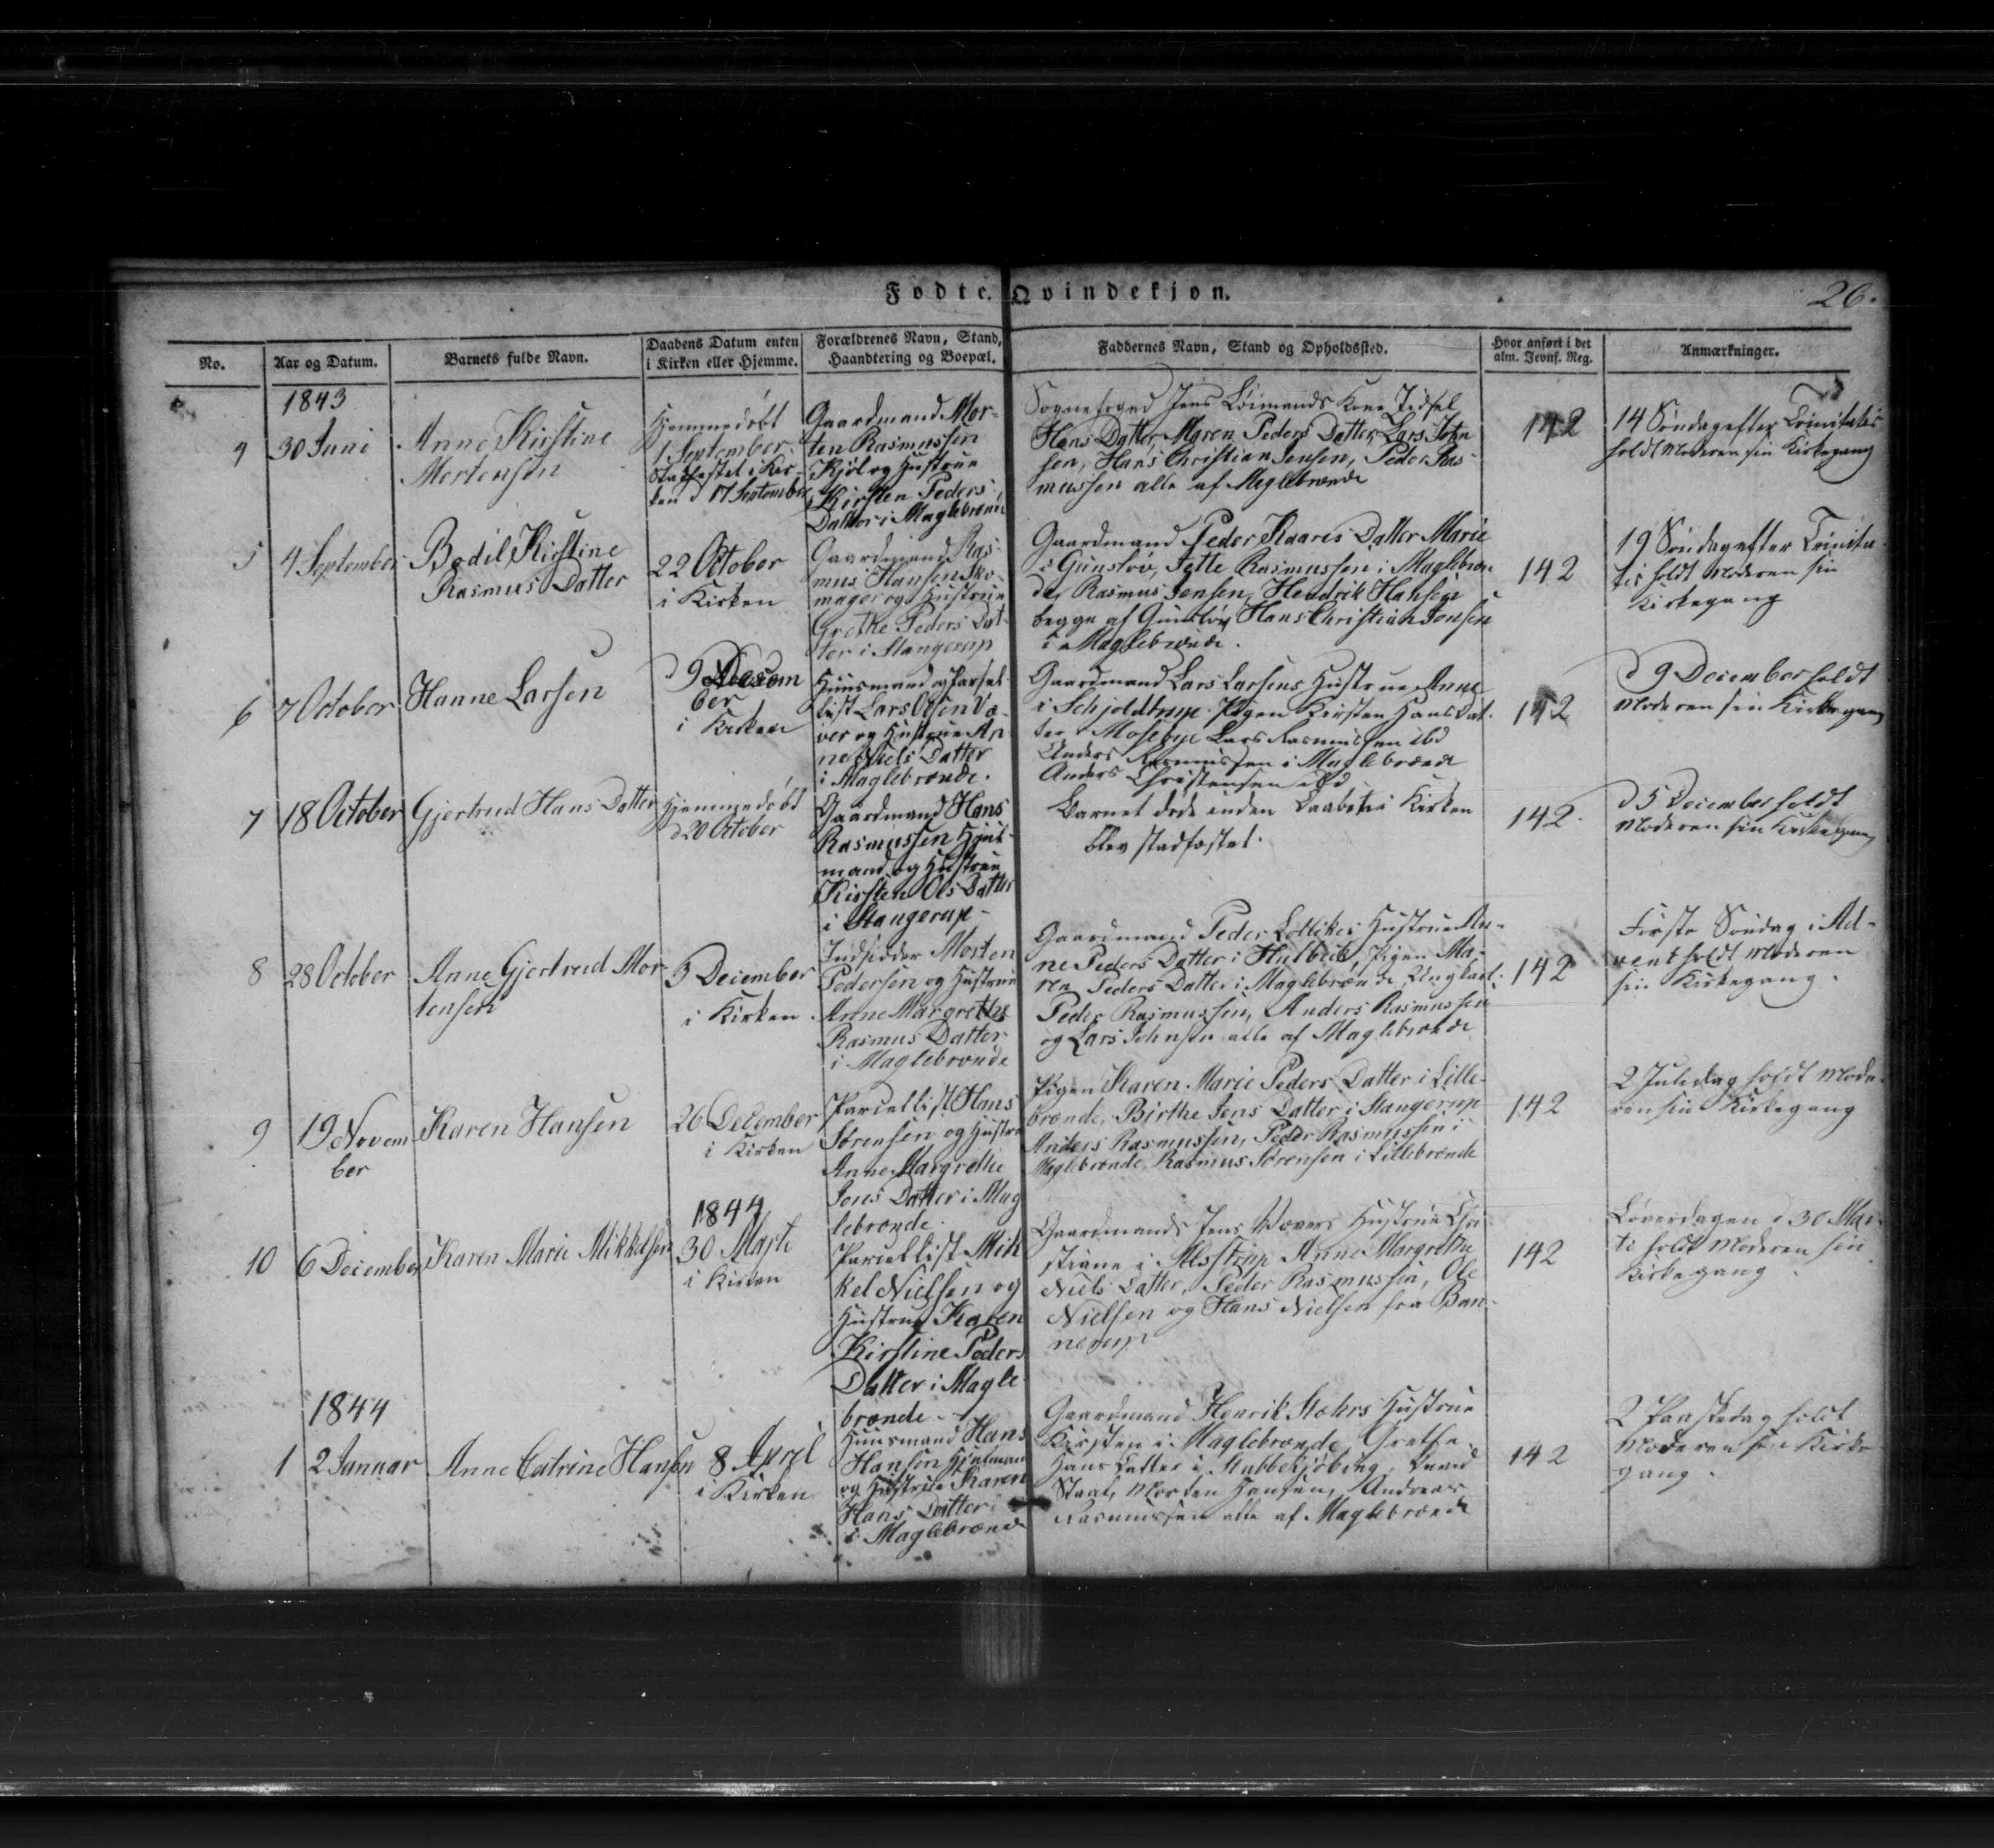 Fødte. Qvindekjøn.
26.
No.
Aar og Datum.
Barnets fulde Navn.
Daabens Datum enten
i Kirken eller Hjemme.
Forældrenes Navn, Stand,
Haandtering og Boepæl.
Faddernes Navn, Stand og Opholdssted.
Hvor anført i det
alm. Jevnf. Reg.
Anmærkninger.
1843
4
30 Juni
Anne Kirstine
Mortensen
Hjemmedøbt
1 September
Stadfæstet i Kir-
ken d 17 September
Gaardmand Mor-
ten Rasmussen
Kjøl og Hustrue
Kirsten Peders
Datter i Maglebrænde
Sognefoged Jens Kone Sidsel
Hans Datter, Maren Peders Datter, Lars John
sen, Hans Christian Jensen, Peder Ras-
mussen alle af Maglebrænde
142
14 Søndag efter Trinitatis
holdt Moderen sin Kirkegang
5
4 September
Bodil Kirstine
Rasmus Datter
22 October
i Kirken
Gaardmand Ras-
mus Hansen Sko-
mager og Hustrue
Grethe Peders Dat-
ter i Stangerup
Gaardmand Peder Kaares Datter Marie
i Gundslöv, Jette Rasmussen i Maglebræn
de, Rasmus Jensen, Hendrik Hansen
begge af Gundslöv Hans Christian Jensen
i Maglebrænde.
142
19 Søndag efter Trinita
tis holdt Moderen sin
Kirkegang
6
7 October
Hanne Larsen
d 9 Decem
ber
i Kirken
Huusmand og Parsel-
list Lars Olsen Væ-
ver og Hustrue An
ne Niels Datter
i Maglebrænde.
Gaardmand Lars Larsens Hustrue Anne
i Schjoldtrup. Pigen Kirsten Hans Dat-
ter Lars Rasmussen ibd
Anders Rasmussen i Maglebrænde
Anders Christensen ibd
142
d 9 December holdt
Moderen sin Kirkegang
7
18 October
Gjertrud Hans Datter
Hjemmedøbt
d 20 October
Gaardmand Hans
Rasmussen Hjul-
mand og Hustrue
Kirsten Ols Datter
i Stangerup -
Barnet døde inden Daaben i Kirken
blev stadfæstet.
142.
d 5 December holdt
Moderen sin Kirkegang
8
28 October
Anne Gjertrud Mor
tensen
3 December
i Kirken
Indsidder Morten
Pedersen og Hustrue
Anne Margrethe
Rasmus Datter
i Maglebrænde
Gaardmand Peder Hustrue An-
ne Peders Datter i Hulbæk, Pigen Ma-
ren Peders Datter i Maglebrænde, Ungkarl
Peder Rasmussen, Anders Rasmussen
og Lars Johnsen alle af Maglebrænde
142
Første Søndag i Ad-
vent holdt Moderen
sin Kirkegang.
9
19 Novem
ber
Karen Hansen
26 December
i Kirken
Parcellist Hans
Sørensen og Hustrue
Anne Margrethe
Jens Datter i Mag
lebrænde.
Pigen Karen Marie Peders Datter i Lille-
brænde, Birthe Jens Datter i Stangerup
Anders Rasmussen, Peder Rasmussen i
Maglebrænde, Rasmus Sørensen i Lillebrænde
142
2 Juledag holdt Mode-
ren sin Kirkegang
10
6 December
Karen Marie Mikkelsen
1844
30 Marts
i Kirken
Parcellist Mik
kel Nielsen og
Hustrue Karen
Kirstine Peders
Datter i Magle
brænde -
Gaardmands Jens Vævers Hustrue Chri
stiane i Alstrup Anne Margrethe
Niels Datter, Peder Rasmussen, Ole
Nielsen og Hans Nielsen fra Ban-
nerup
142
Løverdagen d 30 Mar-
ts holdt Moderen sin
Kirkegang
1844
1
2 Januar
Anne Catrine Hansen
8 April
i Kirken
Huusmand Hans
Hansen Hjulmand
og Hustrue Karen
Hans Datter
i Maglebrænde
Gaardmand Henrik Stæhrs Hustrue
Kirsten i Maglebrænde, Grethe
Hans Datter i Stubbekjöbing,
Staal, Morten Hansen, Andreas
Rasmussen alle af Maglebrænde
142
2 Paaskedag holdt
Moderen sin Kirke
gang.